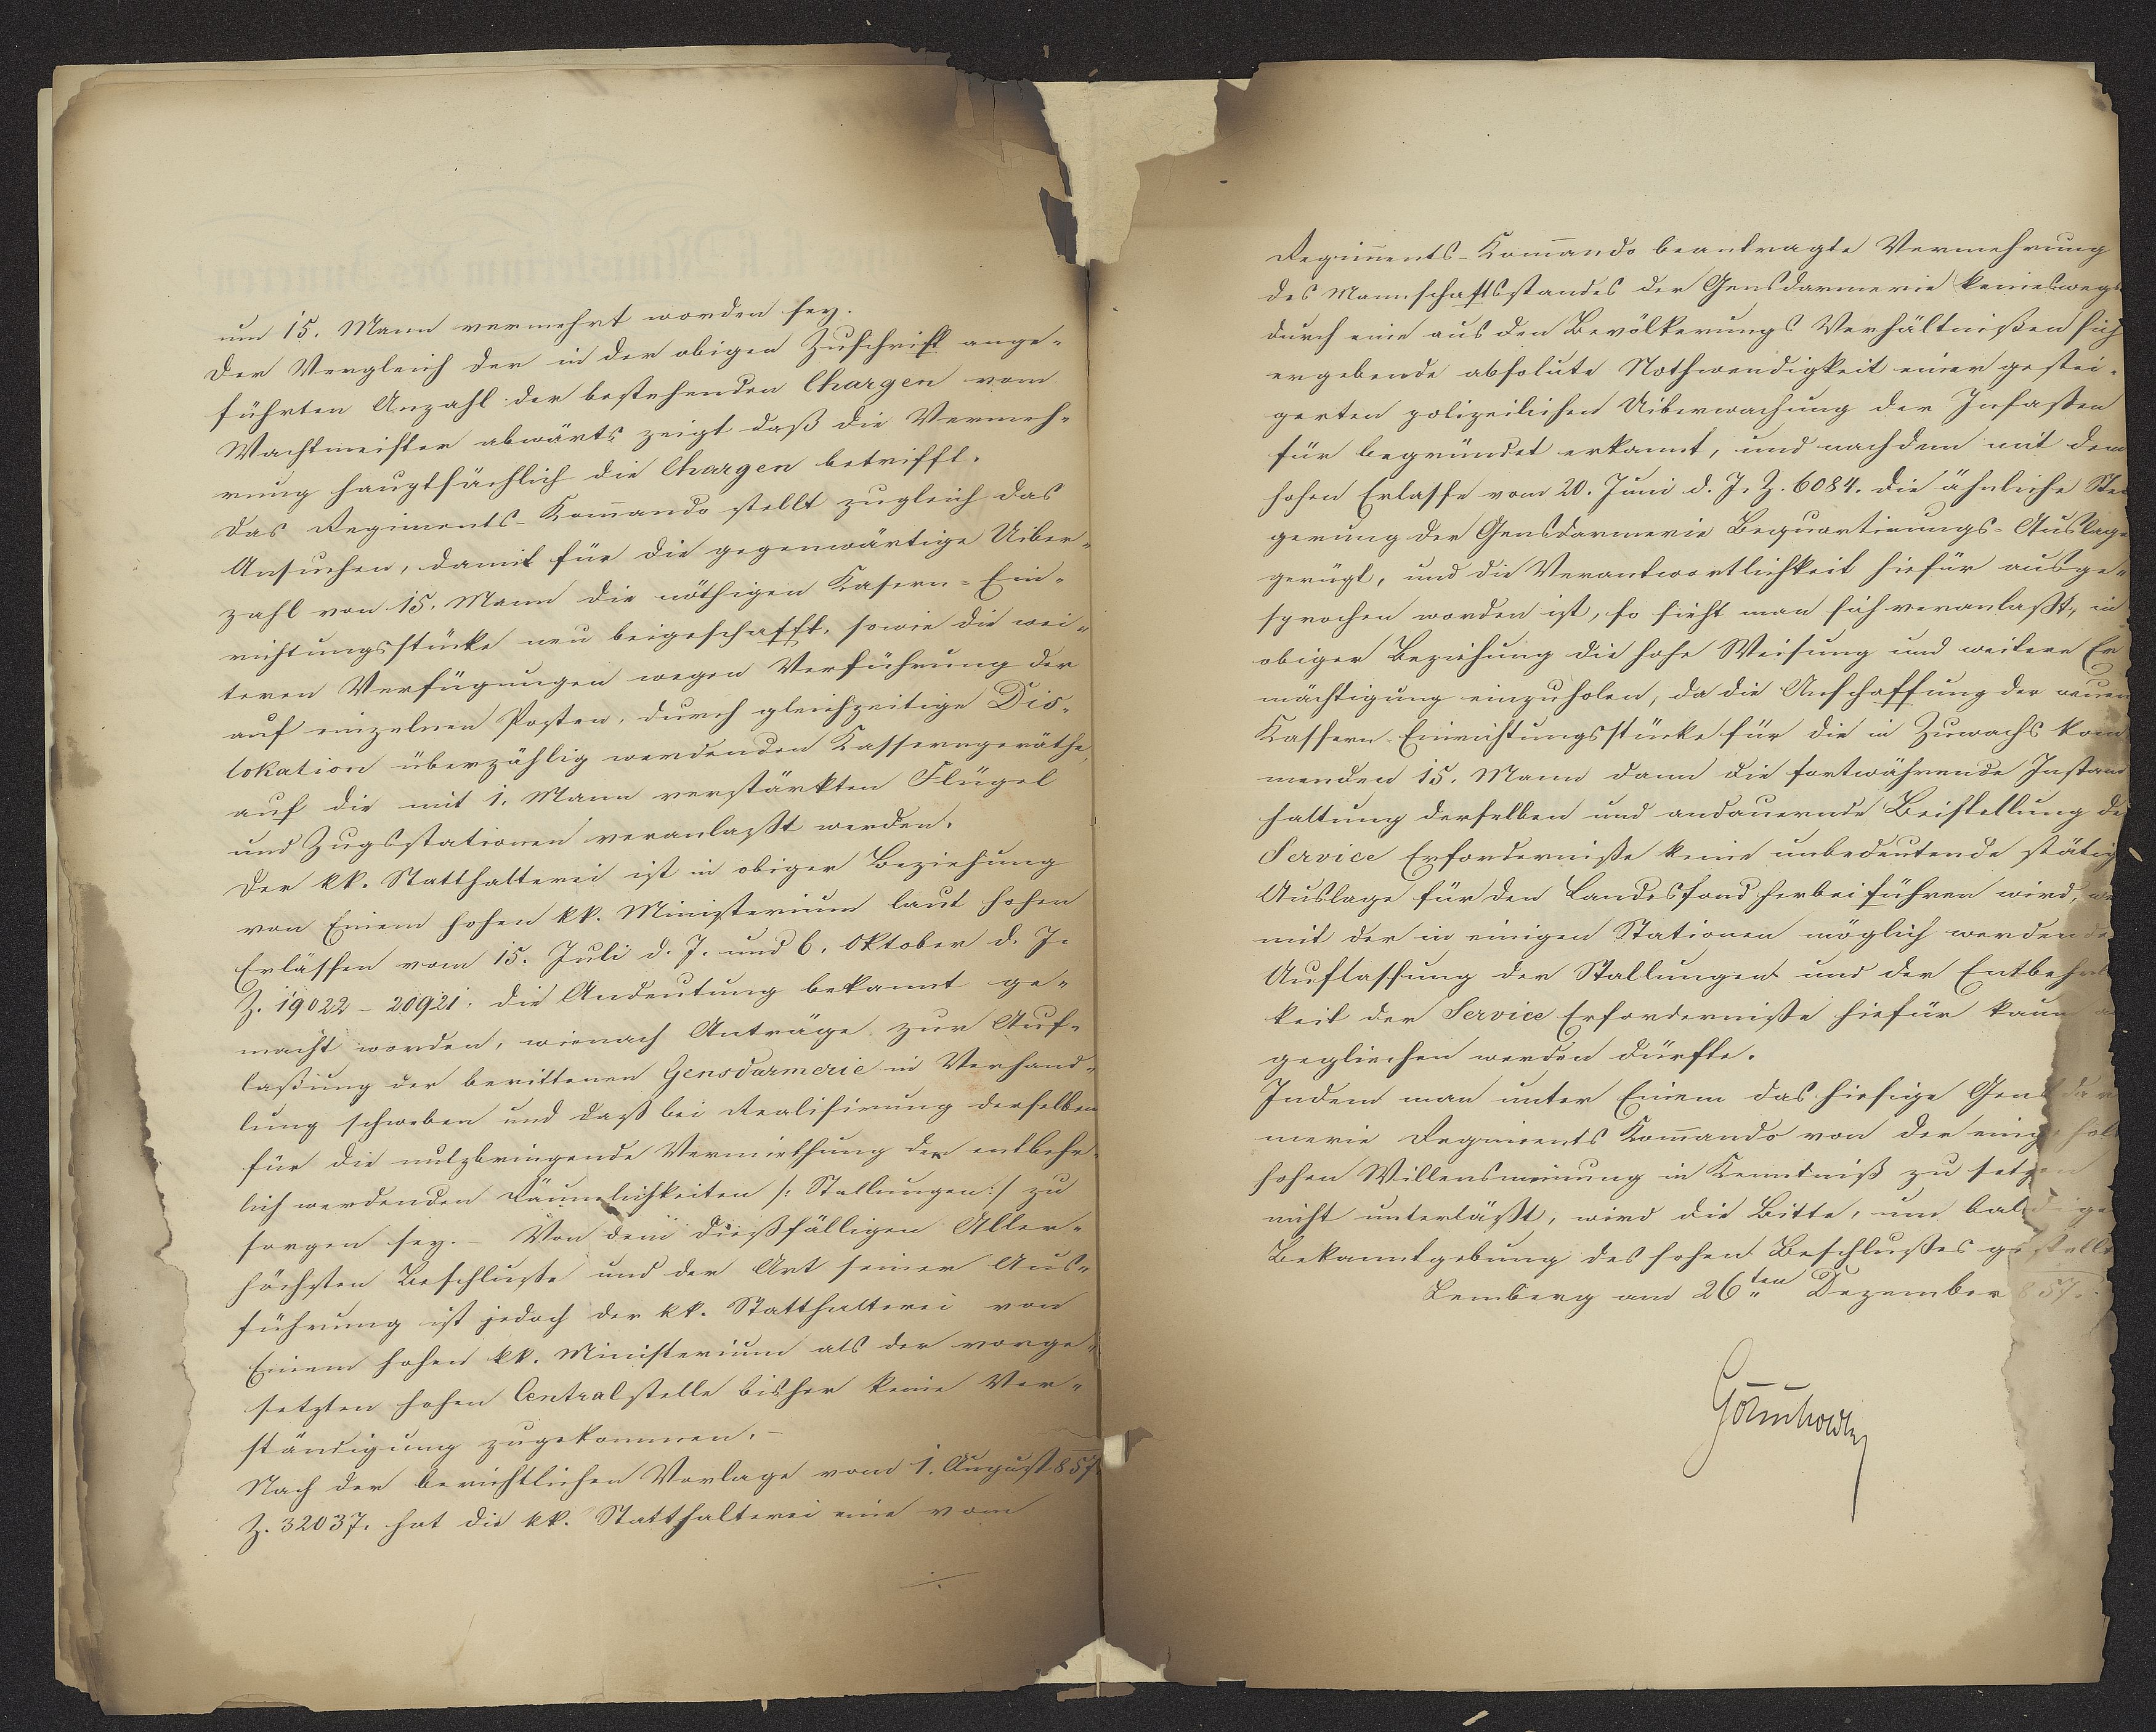 um 15. Mann vermehrt worden sey.
Der Vergleich der in der obigen Zuschrift ange-
führten Anzahl der bestehenden Chargen vom
Wachtmeister abwärts zeigt daß die Vermeh-
rung hauptsächlich die Chargen betrifft.
Das Regiments-Kom̅ando stellt zugleich das
Ansuchen, damit für die gegenwärtige Uiber-
zahl von 15. Mann die nöthigen Kasern-Ein-
richtungsstücke neu beigeschafft, sowie die wei-
teren Verfügungen wegen Verführung der
auf einzelnen Posten, durch gleichzeitige Dis-
lokation überzählig werdenden Kasserngeräthe,
auf die mit 1. Mann verstärkten Flügel
und Zugsstationen veranlaßt werden.
Der kk. Statthalterei ist in obiger Beziehung
von Einem hohen kk. Ministerium laut hohen
Erlässen vom 15. Juli d. J. und 6. Oktober d. J.
Z. 19022 – 20921. die Andeutung bekannt ge-
macht worden, wienach Anträge zur Auf-
laßung der berittenen Gensdarmerie in Verhand-
lung schweben und daß bei Realisirung derselben
für die nutzbringende Vermiethung der entbehr-
lich werdenden Räumlichkeiten /: Stallungen :/ zu
sorgen sey. – Von dem dießfälligen Aller-
höchsten Beschluße und der Art seiner Aus-
führung ist jedoch der kk. Statthalterei von
Einem hohen kk. Ministerium als der vorge-
setzten hohen Centralstelle bisher keine Ver-
ständigung zugekommen. –
Nach der berichtlichen Vorlage vom 1. August 857
Z. 32037. hat die kk. Statthalterei eine vom
Regiments-Kom̅ando beantragte Vermehrung
des Mannschaftsstandes der Gensdarmerie keineswegs
durch eine aus den Bevölkerungs Verhältnißen sich
ergebende absolute Nothwendigkeit einer gestei-
gerten polizeilichen Uiberwachung der Insaßen
für begründet erkannt, und nachdem mit dem
hohen Erlasse vom 20. Juni d. J. Z. 6084. die ähnliche Stei
gerung der Gensdarmerie Bequartirungs-Auslage
gerügt, und die Verantwortlichkeit hiefür ausge-
sprochen worden ist, so sieht man sich veranlaßt, in
obiger Beziehung die hohe Weisung und weitere Er
mächtigung einzuholen, da die Anschaffung der neuen
Kassern-Einrichtungsstücke für die in Zuwachs kom
menden 15. Mann dann die fortwährende Instand
haltung derselben und andauernde Beistellung de
Service Erforderniße keine unbedeutende stätig
Auslage für den Landesfond herbeiführen wird,
mit der in einigen Stationen möglich werdende
Auflassung der Stallungen und der Entbehrl
keit der Service Erforderniße hiefür kaum
geglichen werden dürfte.
Indem man unter Einem das hiesige Gensdar
merie Regiments Kom̅ando von der eingehol
hohen Willensmeinung in Kenntniß zu setzen
nicht unterläßt, wird die Bitte, um baldige
Bekanntgebung des hohen Beschlußes gestellt
Lemberg am 26ten Dezember 857.